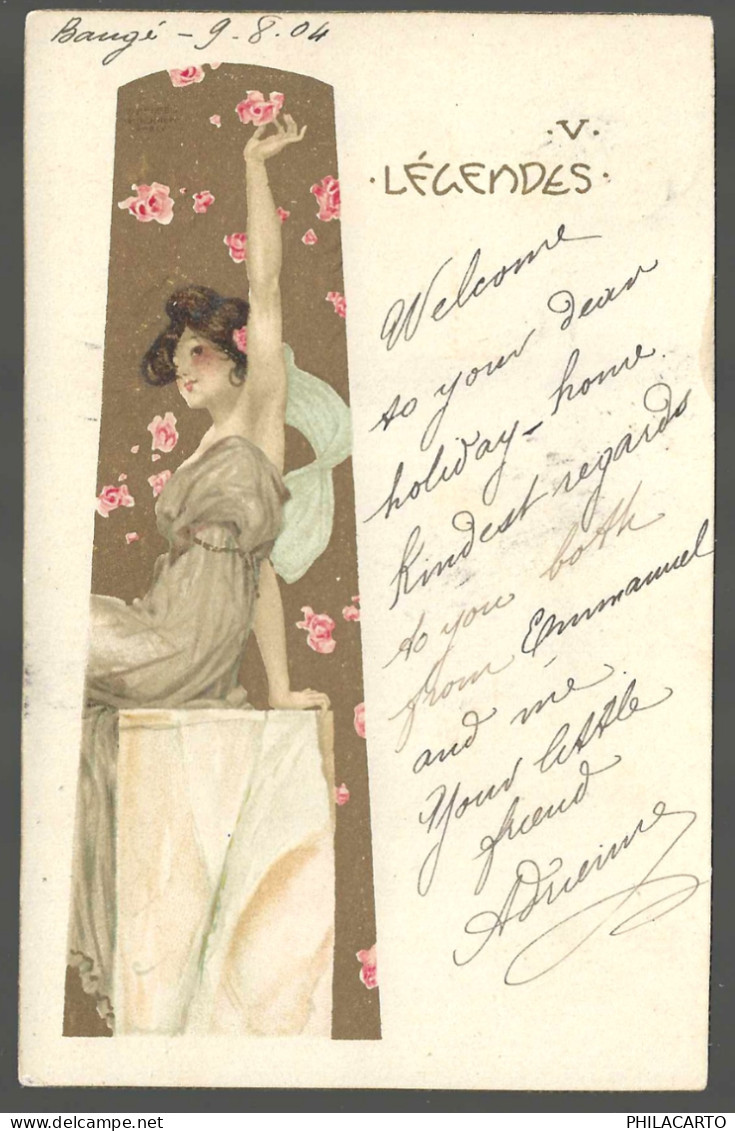 Baugé - 9-8.04
.V.
.LÉGENDES.
Welcome
to your dear
holiday-home.
Kindest regards
to you both
from Emmanuel
and me.
Your little
friend
Adrienne
PHILACARTO